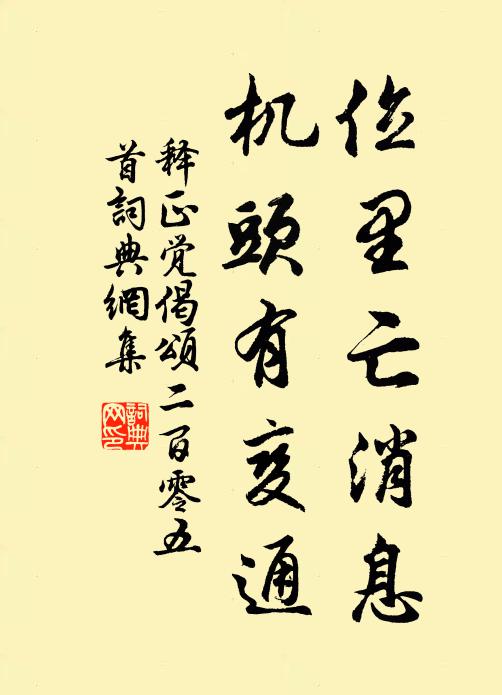 位里亡消息
机頭有变通
释正觉偈頌二百零五
首詞典網集
詞典
网印